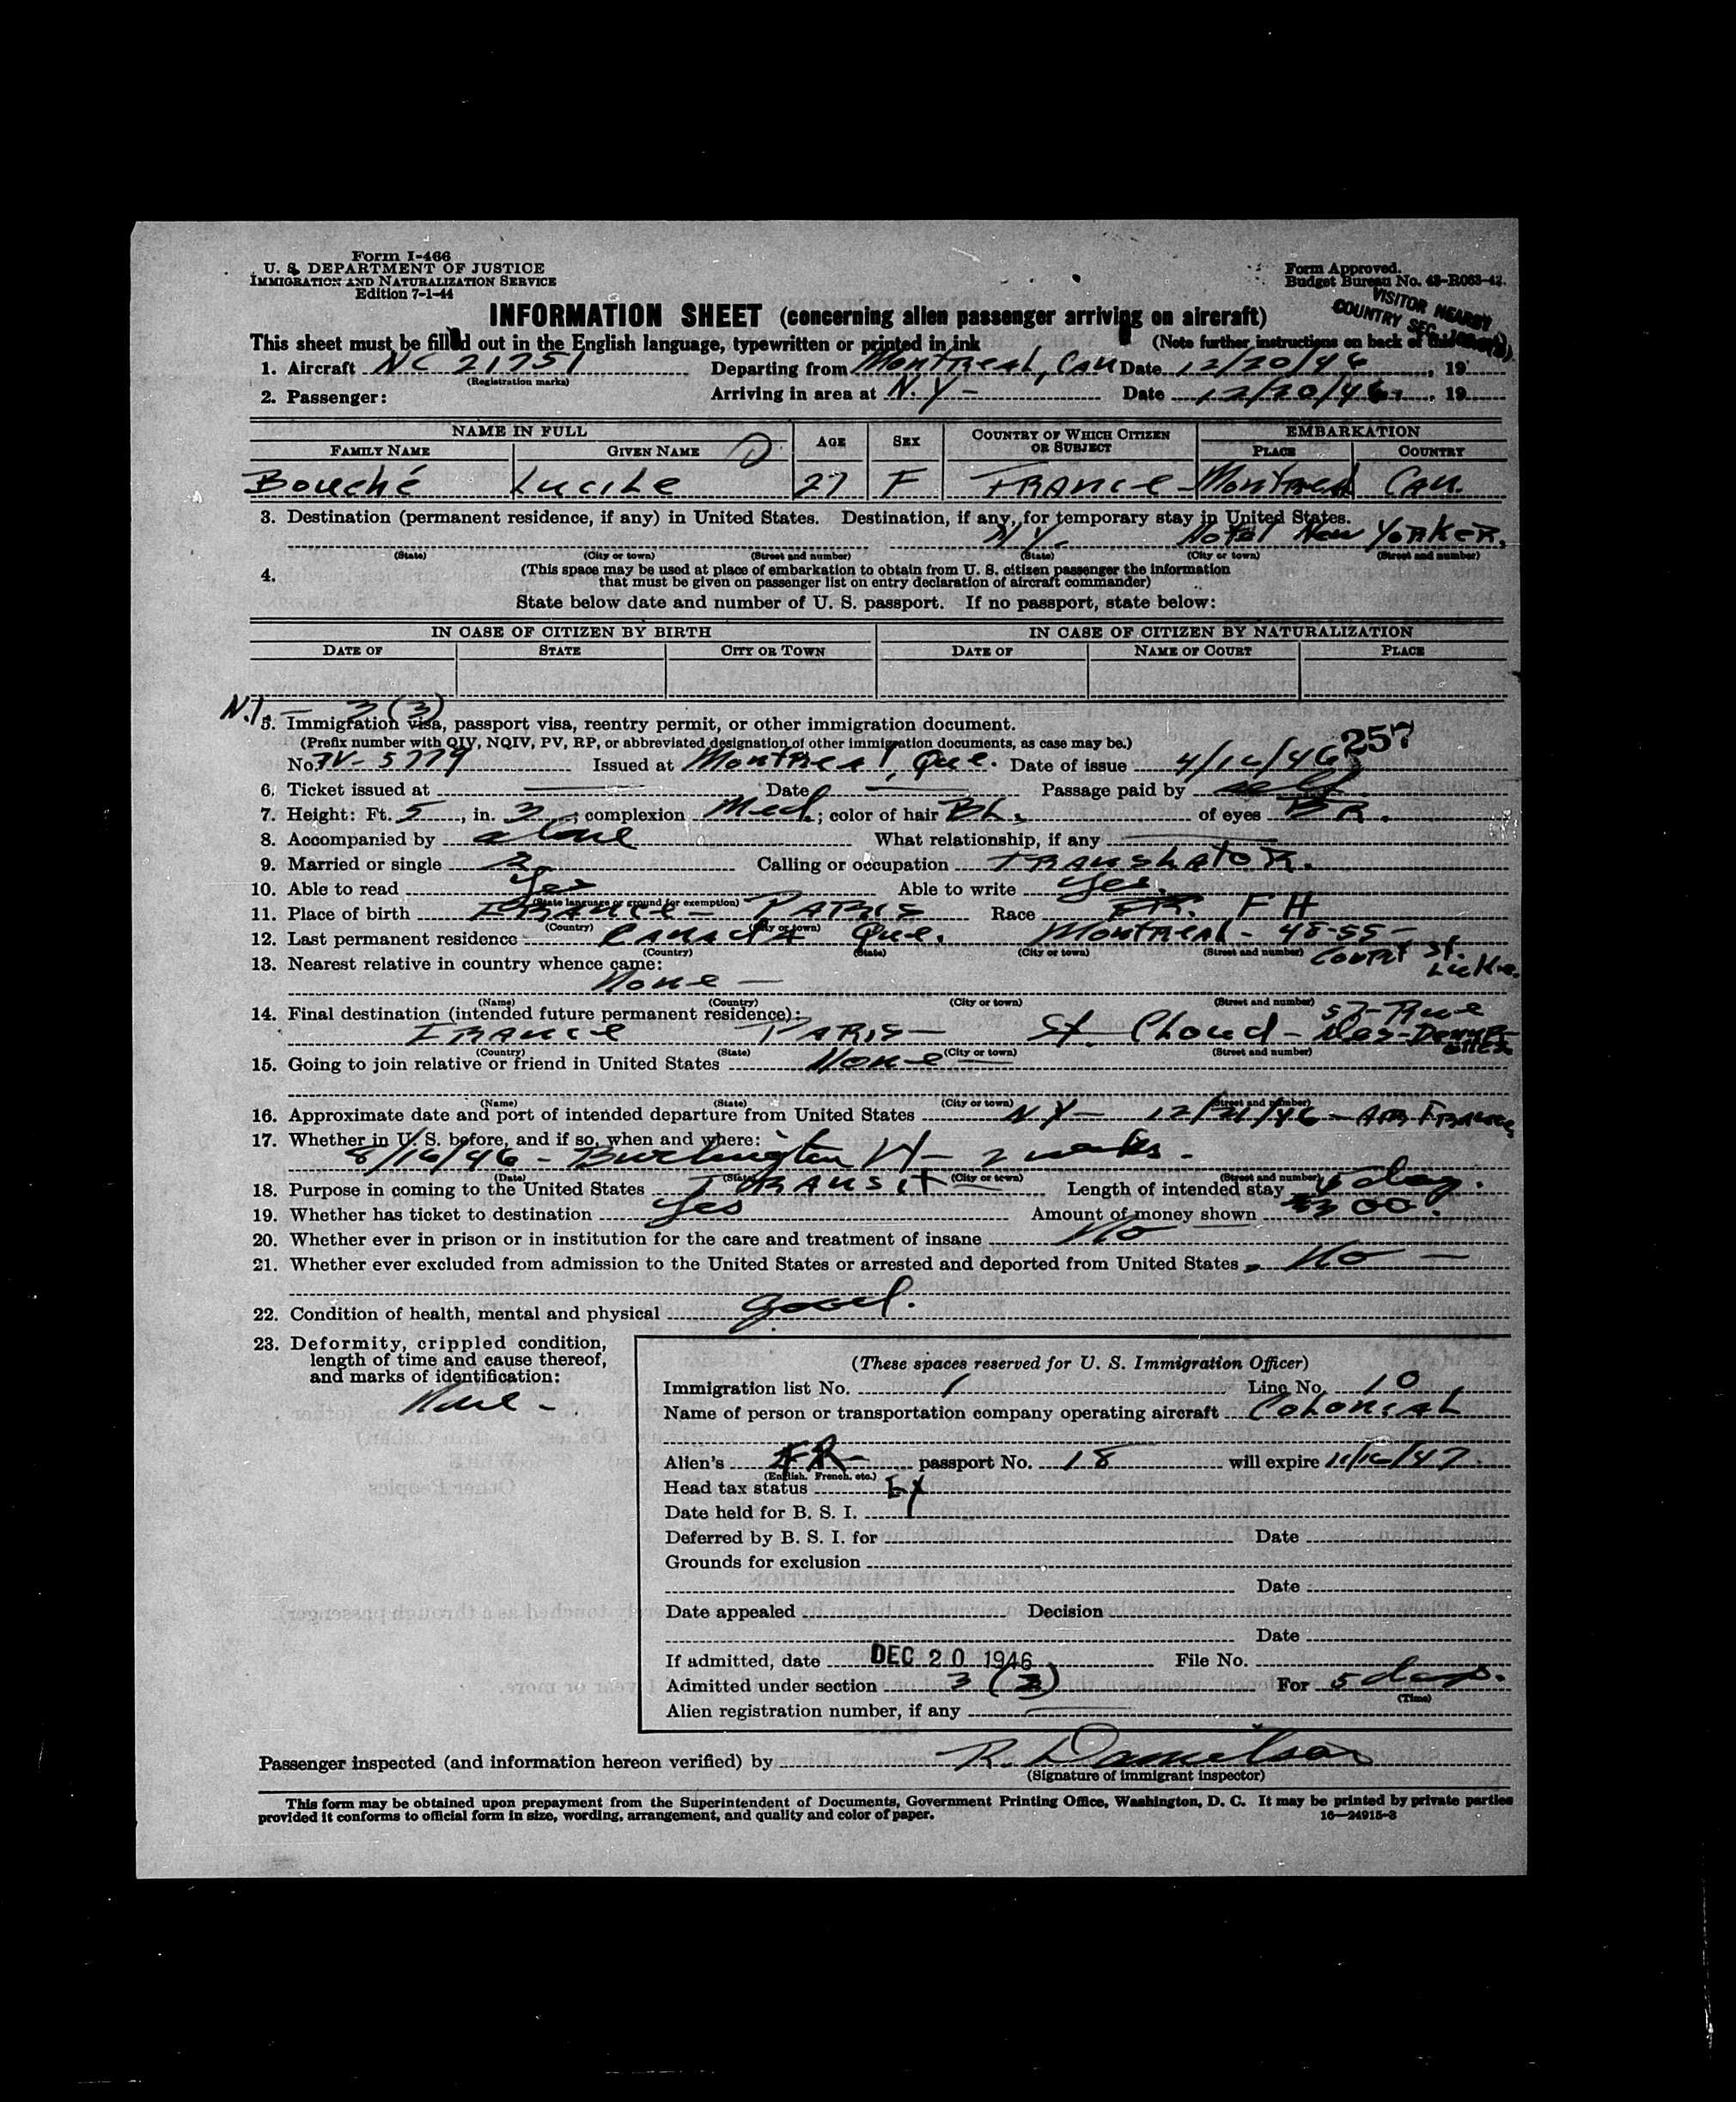 Form I-466
U. S. DEPARTMENT OF JUSTICE
IMMIGRATION AND NATURALIZATION SERVICE
Edition 7-1-44
Form Approved.
Budget Bureau No. 43-R063-42.
VISITOR NEARBY
COUNTRY SEC.
INFORMATION SHEET (concerning alien passenger arriving on aircraft)
This sheet must be filled out in the English language, typewritten or printed in ink (Note further instructions on back of this sheet)
1. Aircraft NC 21751 Departing from Montreal, Can Date 12/20/46, 19
(Registration marks)
2. Passenger: Arriving in area at N.Y - Date 12/20/46, 19
NAME IN FULL AGE SEX COUNTRY OF WHICH CITIZEN OR SUBJECT EMBARKATION
FAMILY NAME GIVEN NAME PLACE COUNTRY
Bouché Lucile 27 F France Montreal Can.
3. Destination (permanent residence, if any) in United States. Destination, if any, for temporary stay in United States.
N.Y. Hotel New Yorker.
(State) (City or town) (Street and number) (State) (City or town) (Street and number)
4. (This space may be used at place of embarkation to obtain from U. S. citizen passenger the information
that must be given on passenger list on entry declaration of aircraft commander)
State below date and number of U. S. passport. If no passport, state below:
IN CASE OF CITIZEN BY BIRTH IN CASE OF CITIZEN BY NATURALIZATION
DATE OF STATE CITY OR TOWN DATE OF NAME OF COURT PLACE
3 (3)
5. Immigration visa, passport visa, reentry permit, or other immigration document.
(Prefix number with QIV, NQIV, PV, RP, or abbreviated designation of other immigration documents, as case may be.)
257
No. 5779 Issued at Montreal, Que. Date of issue 4/16/46
6. Ticket issued at — Date — Passage paid by self
7. Height: Ft. 5, in. 3; complexion Med.; color of hair Bl. of eyes BR.
8. Accompanied by alone What relationship, if any —
9. Married or single Calling or occupation Translator.
10. Able to read Yes Able to write Yes.
(State language or ground for exemption)
11. Place of birth France - Paris Race FR. FH
(Country) (City or town)
12. Last permanent residence Canada Que. Montreal - 48-55 - Court St. Luke.
(Country) (State) (City or town) (Street and number)
13. Nearest relative in country whence came:
None —
(Name) (Country) (City or town) (Street and number)
14. Final destination (intended future permanent residence):
France Paris - St. Cloud - 57- Rue
(Country) (State) (City or town) (Street and number)
15. Going to join relative or friend in United States None —
(Name) (State) (City or town) (Street and number)
16. Approximate date and port of intended departure from United States N.Y - 12/21/46 - Air France
17. Whether in U. S. before, and if so, when and where:
8/16/46 - Burlington Vt - 2 weeks.
(Date) (State) (City or town) (Street and number)
18. Purpose in coming to the United States Transit Length of intended stay
19. Whether has ticket to destination Yes Amount of money shown
20. Whether ever in prison or in institution for the care and treatment of insane No
21. Whether ever excluded from admission to the United States or arrested and deported from United States No —
22. Condition of health, mental and physical good.
23. Deformity, crippled condition,
length of time and cause thereof,
and marks of identification:
None -
(These spaces reserved for U. S. Immigration Officer)
Immigration list No. 1 Line No. 10
Name of person or transportation company operating aircraft Colonial
Alien's FR- passport No. 18 will expire 11/16/47
(English, French, etc.)
Head tax status Ex
Date held for B. S. I.
Deferred by B. S. I. for Date
Grounds for exclusion
Date
Date appealed Decision
Date
If admitted, date DEC 20 1946 File No.
Admitted under section 3 (3) For 5 days.
(Time)
Alien registration number, if any —
Passenger inspected (and information hereon verified) by R. Danielson
(Signature of immigrant inspector)
This form may be obtained upon prepayment from the Superintendent of Documents, Government Printing Office, Washington, D. C. It may be printed by private parties
provided it conforms to official form in size, wording, arrangement, and quality and color of paper. 16—24915-3